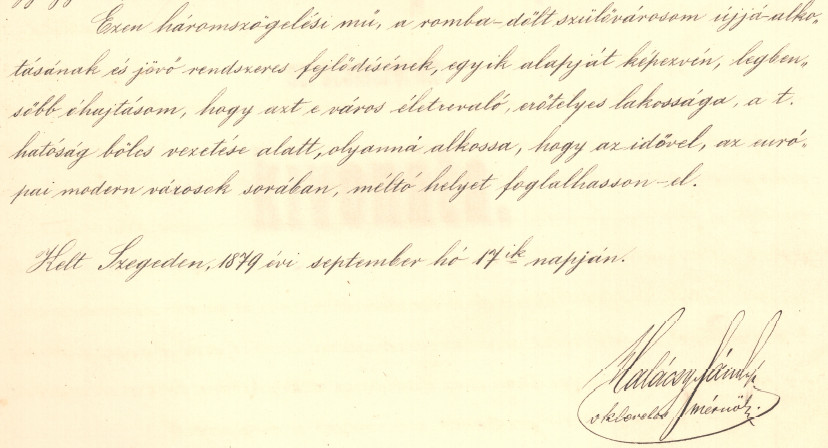 Ezen háromszögelési mű, a romba-dőlt szülővárosom újjá-alko„
tásának és jövő rendszeres fejlődésének, egyik alapját képezvén, legben„
sőbb óhajtásom, hogy azt e város életrevaló, erőtelyes lakossága, a t.
hatóság bölcs vezetése alatt, olyanná alkossa, hogy az idővel, az euró„
pai modern városok sorában, méltó helyet foglalhasson-el.
Kelt Szegeden, 1879 évi september hó 17ik napján.
Halácsy Sándor
okleveles mérnök.